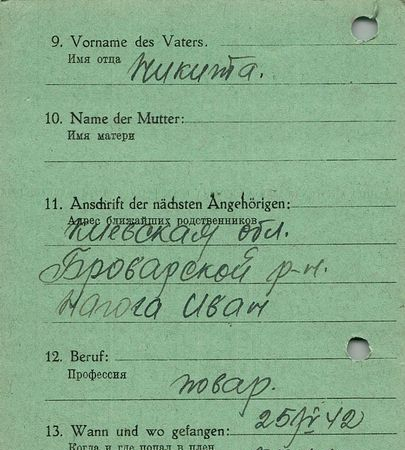 9. Vorname des Vaters.
Имя отца
Никита.
10. Name der Mutter:
Имя матери
11. Anschrift der nächsten Angehörigen:
Адрес ближайших родственников
Киевская обл.
Броварской р-н.
Нагога Иван
12. Beruf:
Профессия
повар.
13. Wann und wo gefangen: 25/V 42
Когда и где попал в плен